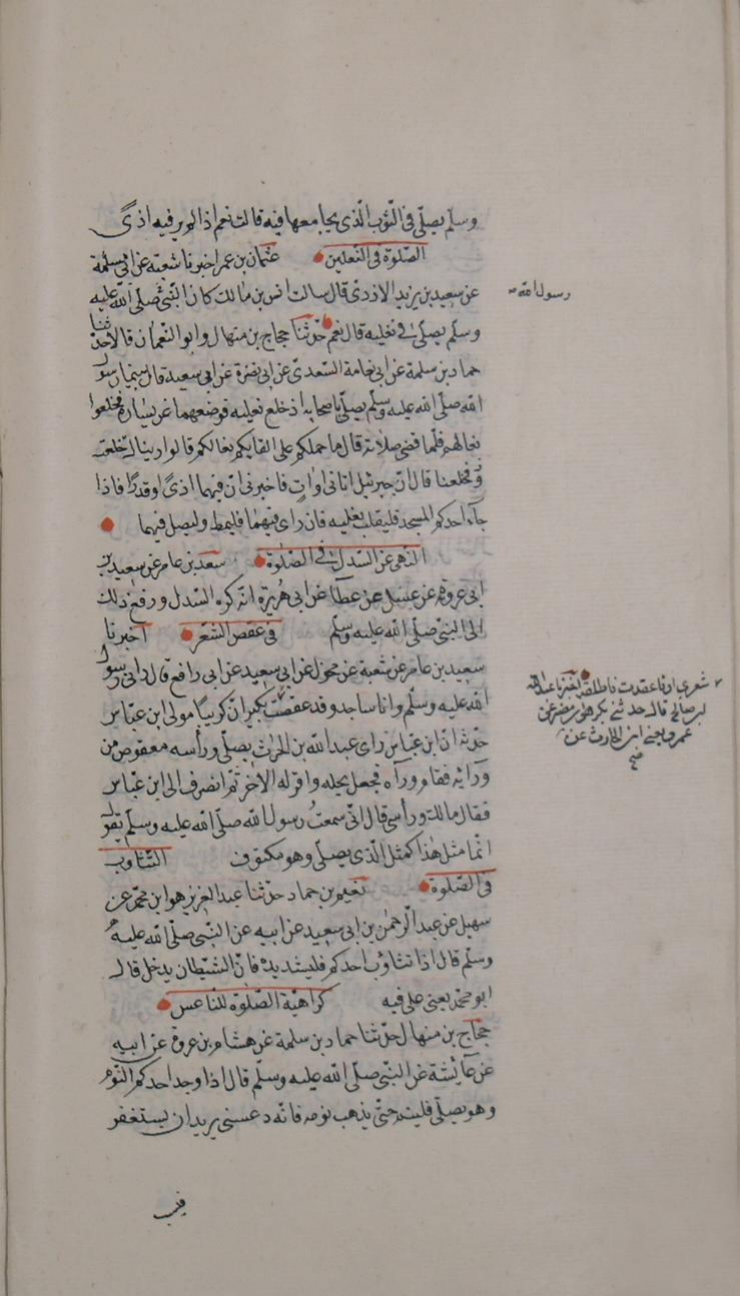 وسلّم يصلّى فى الثوب الّذى يجامعها فيه قالت نعم اذا لم ير فيه اذى
الصّلوة فى النّعلين عثمان بن عمر اخبرنا شعبة عن ابى سلمة
عن سعيد بن يزيد الازدى قال سالت انس بن مالك كان النّبى صلّى الله عليه
رسول الله
وسلّم يصلّى فى نعليه قال نعم حدّثنا حجاج بن منهال وابو النّعمان قالا حدّثنا
حماد بن سلمة عن ابى نعامة السّعدى عن ابى نضرة عن ابى سعيد قال بينما رسول
الله صلّى الله عليه وسلّم يصلّى باصحابه اذ خلع نعليه فوضعهما عن يساره فخلعوا
نعالهم فلمّا قضى صلاته قال ما حملكم على القايكم نعالكم قالوا رايناك خلعت
فخلعنا قال انّ جبرئيل اتانى او ات فاخبرنى ان فيهما اذى او قذرا فاذا
جآء احدكم المسجد فليقلب نعليه فان راى فيهما فليمط وليصل فيهما
النّهى عن السّدل فى الصّلوة سعد بن عامر عن سعيد بن
ابى عروة عن عسل عن عطا عن ابى هريرة انّه كره السّدل ورفع ذلك
الى النبى صلّى الله عليه وسلّم فى عقص الشّعر اخبرنا
سعيد بن عامر عن شعبة عن مخول عن ابى سعيد عن ابى رافع قال رانى رسول
الله عليه وسلّم وانا ساجد وقد عقصت بكير ان كريبا مولى ابن عبّاس
شعرى او قا عقدت فاطلقه اخبرنا عبد الله
بن صالح قال حدثنى بكر هو ابن مضر عن
عمرو يعنى ابن الحارث عن
صح
حدّثه انّ ابن عبّاس راى عبد الله بن الحرث يصلّى ورأسه معقوص من
ورآئه فقام ورآءه فجعل يحله واقر له الاخر ثم انصرف الى ابن عبّاس
فقال مالك ورأسى قال انّى سمعت رسول الله صلّى الله عليه وسلّم يقول
انّما مثل هذا كمثل الّذى يصلّى وهو مكتوف التّثاوب
فى الصّلوة نعيم بن حماد حدّثنا عبد العزيز هو ابن محمّد عن
سهيل عن عبد الرّحمن بن ابى سعيد عن ابيه عن النّبى صلّى الله عليه
وسلّم قال اذا تثاوب احدكم فليشد يده فانّ الشّيطان يدخل قال
ابو محمّد يعنى على فيه كراهية الصّلوة للنّاعس
حجاج بن منهال حدّثنا حماد بن سلمة عن هشام بن عروة عن ابيه
عن عآئشة عن النّبى صلّى الله عليه وسلّم قال اذا وجد احدكم النّوم
وهو يصلّى فلينم حتّى يذهب نومه فانّه عسى يريد ان يستغفر
فيسب